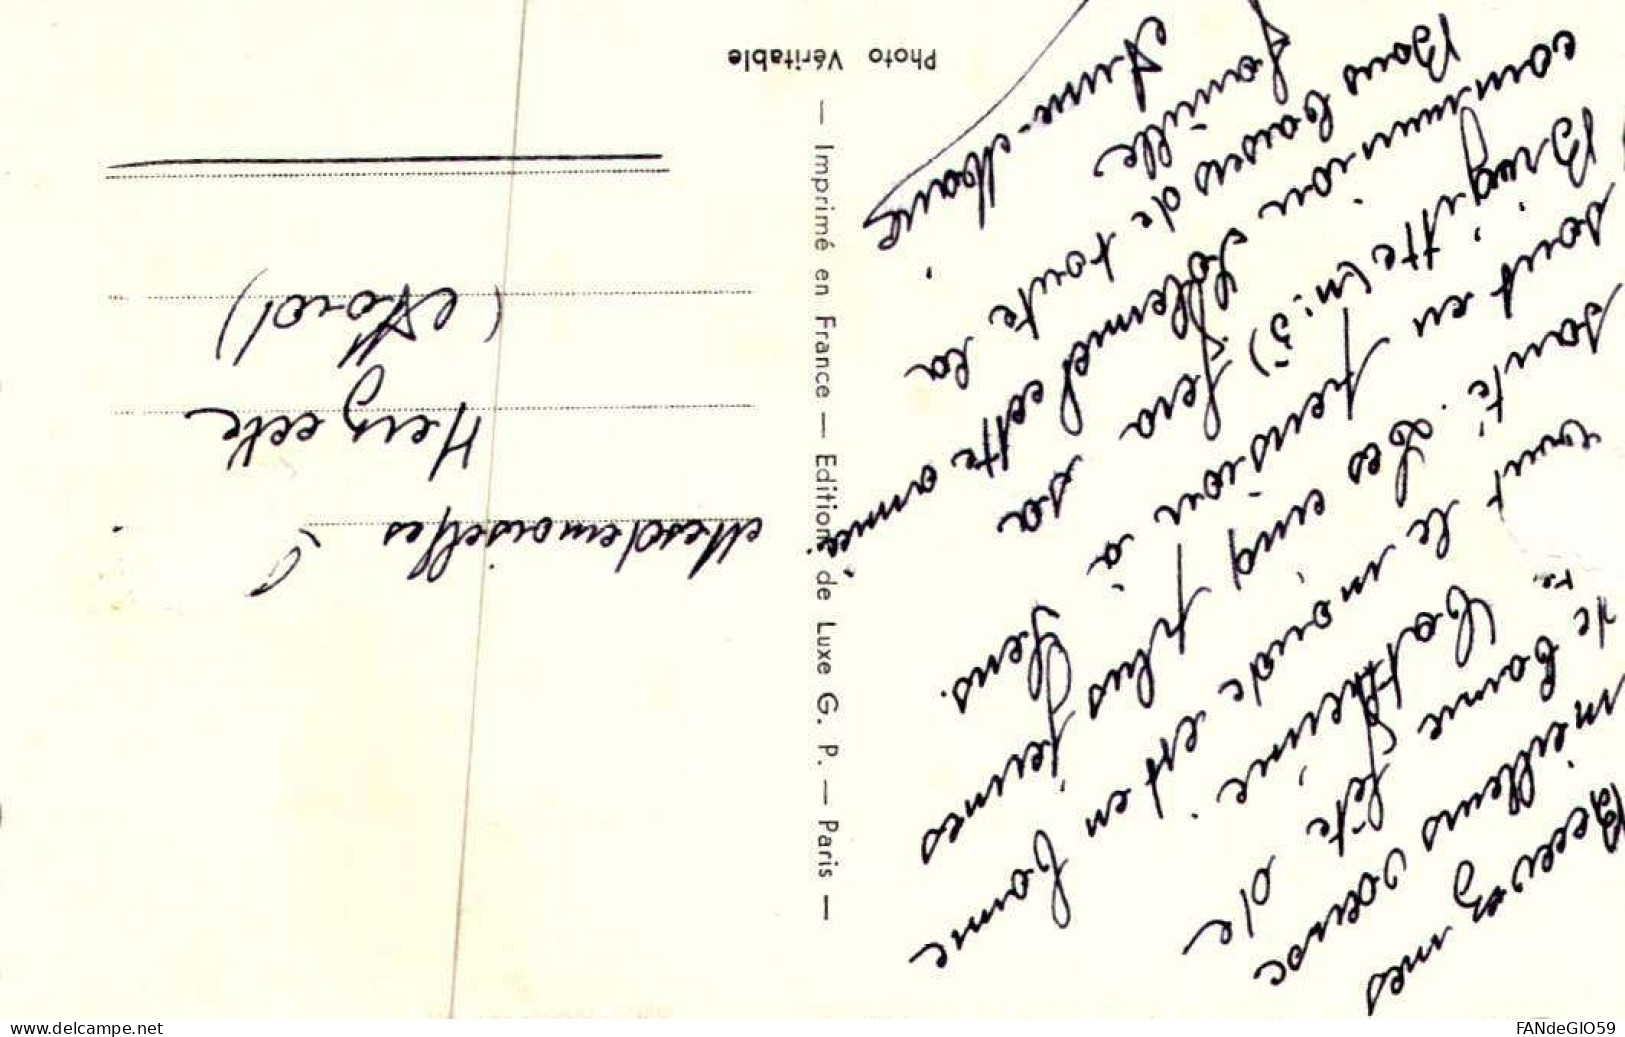 Recevez mes
meilleurs voeux
de bonne fête de
Catherine
tout le monde est en bonne
santé. Les cinq plus jeunes
sont en pension à Lens.
Brigitte (n: 5) fera sa
communion Solennel cette année
Bons baisers de toute la
famille
Anne-Marie
Photo Véritable
— Imprimé en France — Editions de Luxe G. P. — Paris —
Mesdemoiselles
Hergecte
(Nord)
www.delcampe.net
FANdeGIO59